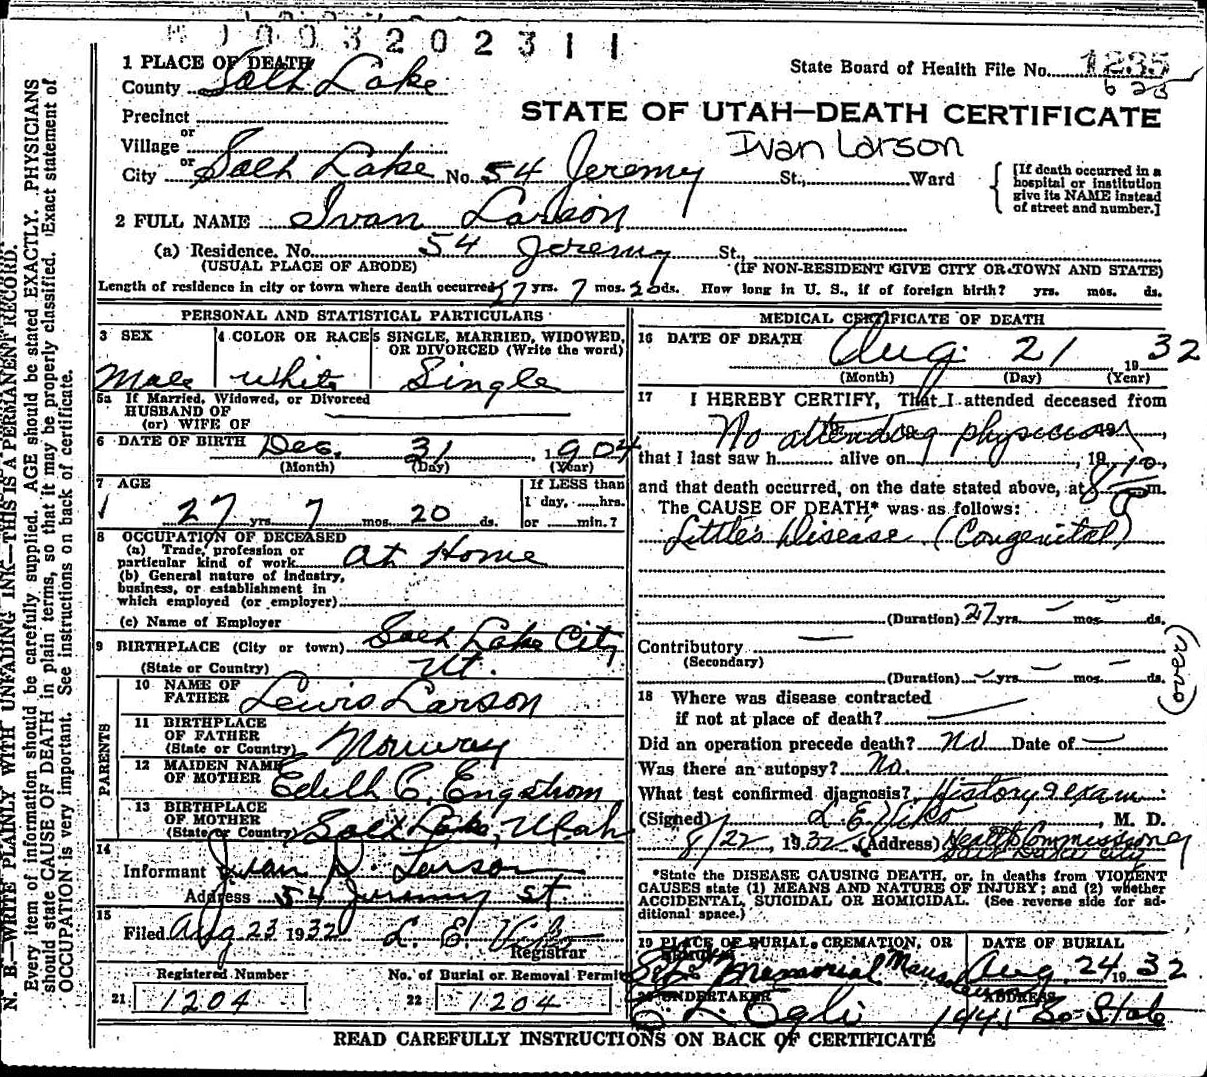 M 0 0 3 2 0 2 3 1 1
1 PLACE OF DEATH
County Salt Lake
State Board of Health File No. 1235
623
Precinct
or
Village
or
STATE OF UTAH—DEATH CERTIFICATE
Ivan Larson
City Salt Lake No. 54 Jeremy St., Ward
[If death occurred in a hospital or institution give its NAME instead of street and number.]
2 FULL NAME Ivan Larson
(a) Residence. No. 54 Jeremy St.,
(USUAL PLACE OF ABODE) (IF NON-RESIDENT GIVE CITY OR TOWN AND STATE)
Length of residence in city or town where death occurred 27 yrs. 7 mos. 20 ds. How long in U. S., if of foreign birth? yrs. mos. ds.
PERSONAL AND STATISTICAL PARTICULARS
3 SEX
Male
4 COLOR OR RACE
White
5 SINGLE, MARRIED, WIDOWED, OR DIVORCED (Write the word)
Single
5a If Married, Widowed, or Divorced
HUSBAND OF
(or) WIFE OF
6 DATE OF BIRTH Dec. 31, 1904
(Month) (Day) (Year)
7 AGE
27 yrs. 7 mos. 20 ds.
If LESS than
1 day, ......hrs.
or ......min.?
8 OCCUPATION OF DECEASED
(a) Trade, profession or
particular kind of work at Home
(b) General nature of industry,
business, or establishment in
which employed (or employer)
(c) Name of Employer
9 BIRTHPLACE (City or town) Salt Lake City
(State or Country) Ut.
PARENTS
10 NAME OF
FATHER Lewis Larson
11 BIRTHPLACE
OF FATHER
(State or Country) Norway
12 MAIDEN NAME
OF MOTHER Edith C. Engstrom
13 BIRTHPLACE
OF MOTHER
(State or Country) Salt Lake, Utah
14
Informant Ivan D. Larson
Address 54 Jeremy St.
15
Filed Aug 23 1932 L. E. Viko
Registrar
Registered Number
21 1204
No. of Burial or Removal Permit
22 1204
MEDICAL CERTIFICATE OF DEATH
16 DATE OF DEATH
Aug. 21 1932
(Month) (Day) (Year)
17 I HEREBY CERTIFY, That I attended deceased from
No attending physician
that I last saw h...... alive on ......, 19
and that death occurred, on the date stated above, at 8 10 p m.
The CAUSE OF DEATH* was as follows:
Little's Disease (Congenital)
(Duration) 27 yrs. — mos. — ds.
Contributory —
(Secondary)
(Duration) — yrs. — mos. — ds.
(over)
18 Where was disease contracted
if not at place of death?
Did an operation precede death? No Date of —
Was there an autopsy? No.
What test confirmed diagnosis? History & exam
(Signed) L. E. Viko, M. D.
8/22, 1932 (Address) Health Commissioner
Salt Lake City
*State the DISEASE CAUSING DEATH, or, in deaths from VIOLENT
CAUSES state (1) MEANS AND NATURE OF INJURY; and (2) whether
ACCIDENTAL, SUICIDAL OR HOMICIDAL. (See reverse side for ad-
ditional space.)
19 PLACE OF BURIAL, CREMATION, OR
REMOVAL
Memorial Mausoleum
DATE OF BURIAL
Aug. 24 1932
20 UNDERTAKER
ADDRESS
1441 So State
READ CAREFULLY INSTRUCTIONS ON BACK OF CERTIFICATE
N. B.—WRITE PLAINLY WITH UNFADING INK—THIS IS A PERMANENT RECORD.
Every item of information should be carefully supplied. AGE should be stated EXACTLY. PHYSICIANS
should state CAUSE OF DEATH in plain terms, so that it may be properly classified. Exact statement of
OCCUPATION is very important. See instructions on back of certificate.